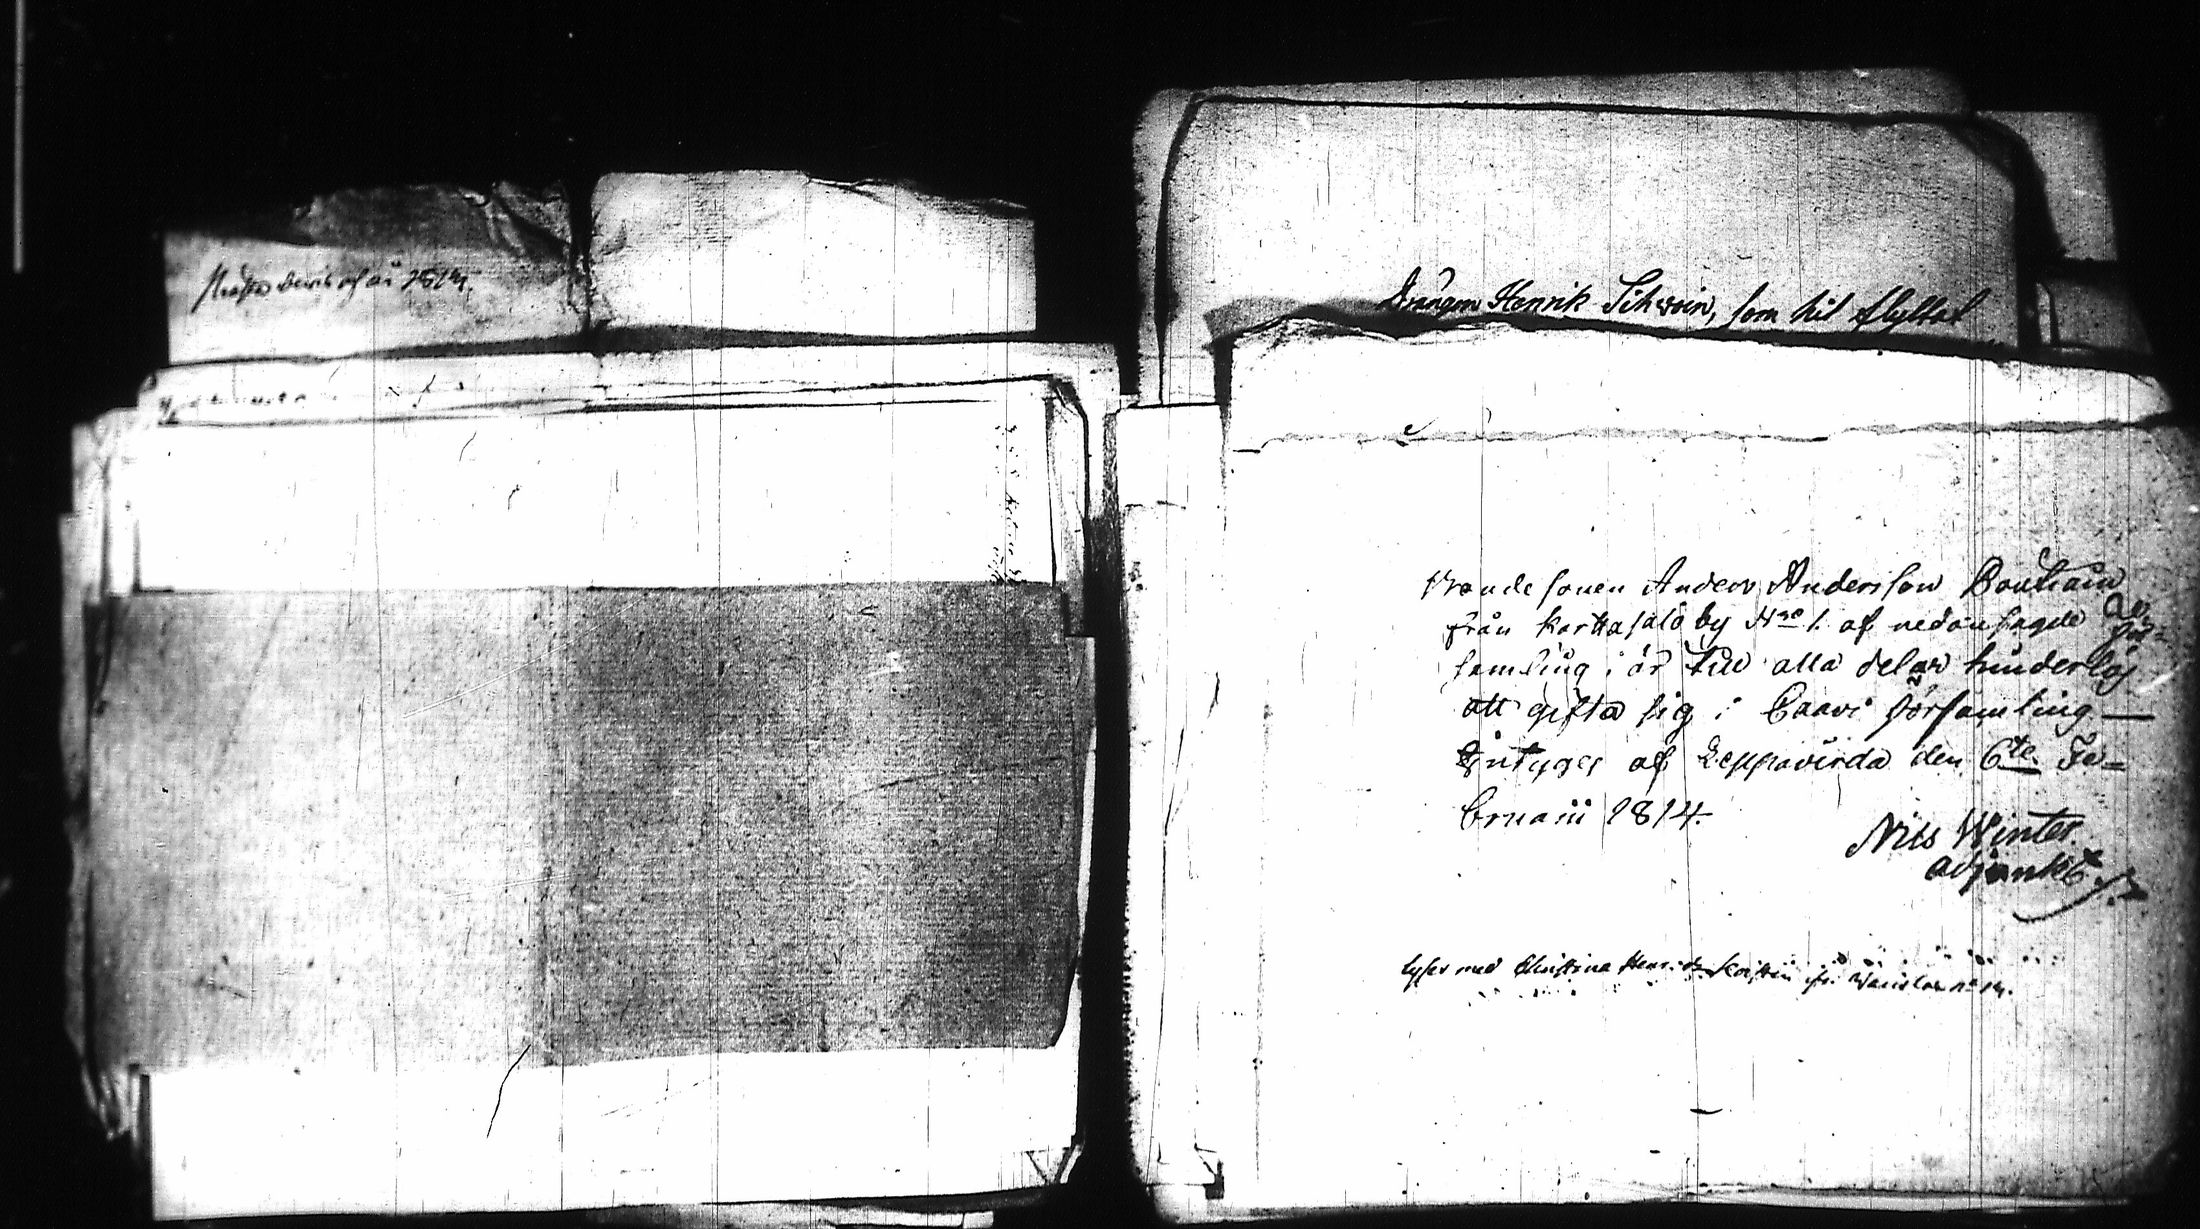 bevis af år 1814.
Drängen Henrik Sihvoin, som hit flyttat
Bonde sonen Anders Andersson Bouhain
från Karttasalo by Nro 1. af nedansagde för=
samling, är till alla delar hinderlös
att gifta sig i Caavi församling —
Intyges af Leppävirda den 6te Fe=
bruarii 1814.
Nils Winter.
adjunkt
lyses med Christina Henrics fr. No 14.